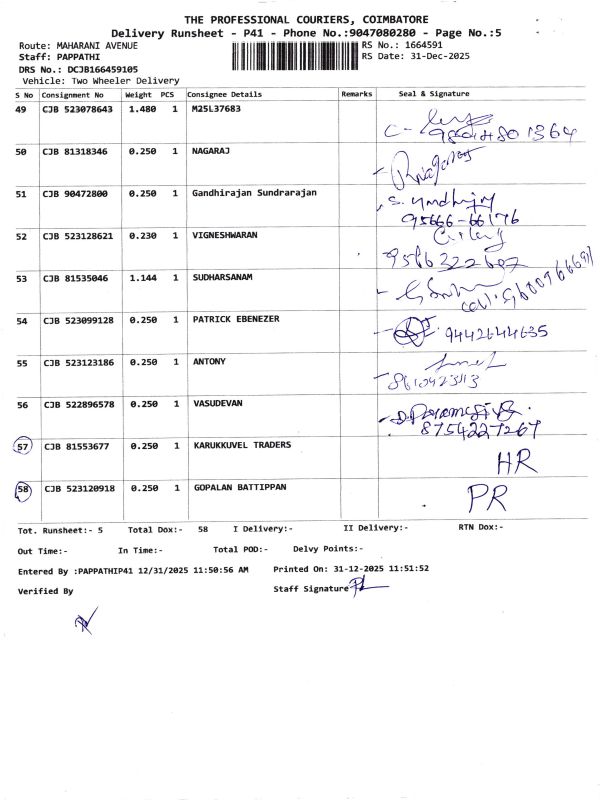 THE PROFESSIONAL COURIERS, COIMBATORE
Delivery Runsheet - P41 - Phone No.:9047080280 - Page No.:5
Route: MAHARANI AVENUE RS No.: 1664591
Staff: PAPPATHI RS Date: 31-Dec-2025
DRS No.: DCJB166459105
Vehicle: Two Wheeler Delivery
S No Consignment No Weight PCS Consignee Details Remarks Seal & Signature
49 CJB 523078643 1.480 1 M25L37683
50 CJB 81318346 0.250 1 NAGARAJ
51 CJB 90472800 0.250 1 Gandhirajan Sundrarajan
95666-66176
52 CJB 523128621 0.230 1 VIGNESHWARAN
53 CJB 81535046 1.144 1 SUDHARSANAM
54 CJB 523099128 0.250 1 PATRICK EBENEZER
9442644635
55 CJB 523123186 0.250 1 ANTONY
56 CJB 522896578 0.250 1 VASUDEVAN
8754227267
57 CJB 81553677 0.250 1 KARUKKUVEL TRADERS
HR
58 CJB 523120918 0.250 1 GOPALAN BATTIPPAN
PR
Tot. Runsheet:- 5 Total Dox:- 58 I Delivery:- II Delivery:- RTN Dox:-
Out Time:- In Time:- Total POD:- Delvy Points:-
Entered By :PAPPATHIP41 12/31/2025 11:50:56 AM Printed On: 31-12-2025 11:51:52
Verified By Staff Signature